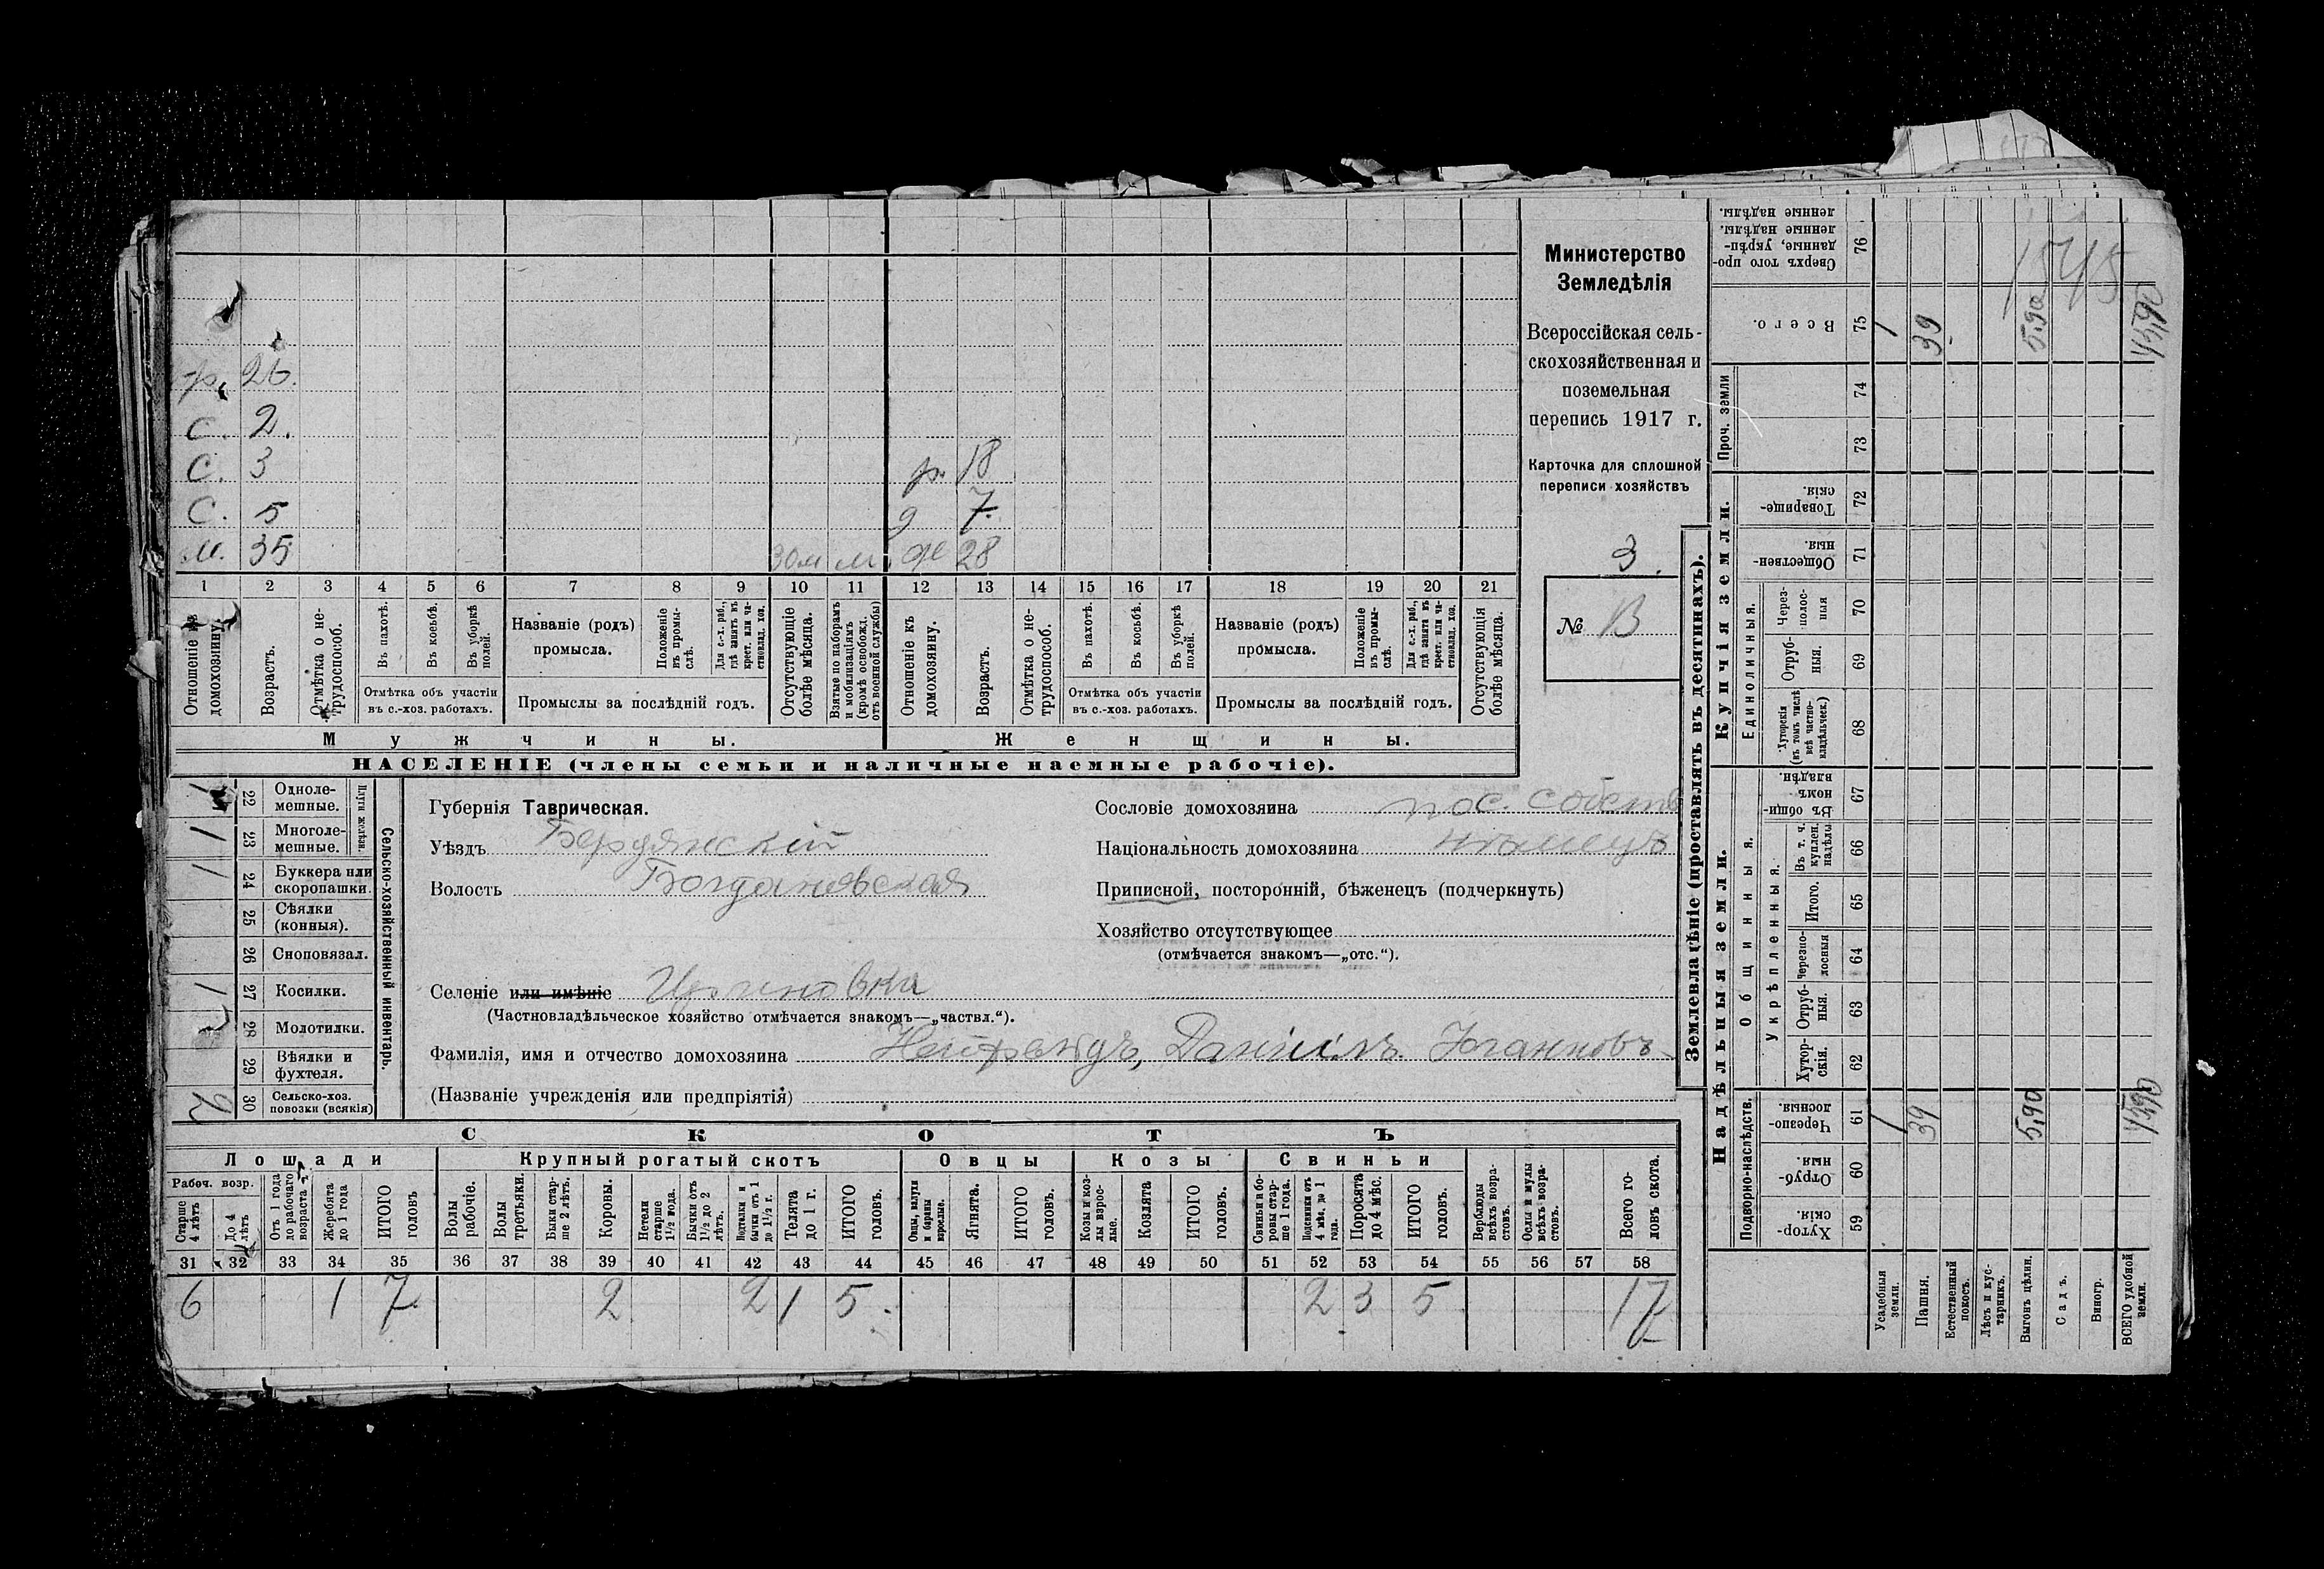 р. 26.
с. 2.
с. 3 р. 18
с. 5 д 7.
м. 35 м. ж 28
1 2 3 4 5 6 7 8 9 10 11 12 13 14 15 16 17 18 19 20 21
Отношеніе къ домохозяину.
Возрастъ.
Отмѣтка о нетрудоспособ.
Въ пахотѣ.
Въ косьбѣ.
Въ уборкѣ полей.
Отмѣтка объ участіи въ с.-хоз. работахъ.
Названіе (родъ) промысла.
Положеніе въ промыслѣ.
Для с.-х. раб., гдѣ занятъ въ крест. или частновлад. хоз.
Промыслы за послѣдній годъ.
Отсутствующіе болѣе мѣсяца.
Взятые по наборамъ и мобилизаціямъ (кромѣ освобожд. отъ военной службы)
Отношеніе къ домохозяину.
Возрастъ.
Отмѣтка о нетрудоспособ.
Въ пахотѣ.
Въ косьбѣ.
Въ уборкѣ полей.
Отмѣтка объ участіи въ с.-хоз. работахъ.
Названіе (родъ) промысла.
Положеніе въ промыслѣ.
Для с.-х. раб., гдѣ занята въ крест. или частновлад. хоз.
Промыслы за послѣдній годъ.
Отсутствующія болѣе мѣсяца.
Мужчины.
Женщины.
НАСЕЛЕНІЕ (члены семьи и наличные наемные рабочіе).
Министерство
Земледѣлія
Всероссійская сель-
скохозяйственная и
поземельная
перепись 1917 г.
Карточка для сплошной
переписи хозяйствъ
3.
№ В
22 Одноле-мешные.
1 23 Многоле-мешные.
Плуги желѣзн.
1 24 Буккера или скоропашки.
25 Сѣялки (конныя).
26 Сноповязал.
1 27 Косилки.
28 Молотилки.
29 Вѣялки и фухтеля.
2 30 Сельско-хоз. повозки (всякія)
Сельско-хозяйственный инвентарь.
Губернія Таврическая.
Уѣздъ Бердянскій
Волость Богдановская
Сословіе домохозяина пос. собств
Національность домохозяина нѣмецъ
Приписной, посторонній, бѣженецъ (подчеркнуть)
Хозяйство отсутствующее
(отмѣчается знакомъ—„отс.“).
Селеніе или имѣніе
(Частновладѣльческое хозяйство отмѣчается знакомъ—„частвл.“).
Фамилія, имя и отчество домохозяина Нейфельдъ, Даніилъ Іоганновъ
(Названіе учрежденія или предпріятія)
СКОТЪ
Лошади
Крупный рогатый скотъ
Овцы
Козы
Свиньи
Рабоч. возр.
Старше 4 лѣтъ
До 4 лѣтъ
Отъ 1 года до рабочаго возраста
Жеребята до 1 года
ИТОГО головъ
Волы рабочіе.
Волы третьяки.
Быки старше 2 лѣтъ.
Коровы.
Нетели старше 1½ года.
Бычки отъ 1½ до 2 лѣтъ.
Нетелки и бычки отъ 1 до 1½ г.
Телята до 1 г.
ИТОГО головъ.
Овцы, валухи и бараны взрослые.
Ягнята.
ИТОГО головъ.
Козы и козлы взрослые.
Козлята
ИТОГО головъ.
Свиньи и боровы старше 1 года.
Подсвинки отъ 4 мѣс. до 1 года.
Поросята до 4 мѣс.
ИТОГО головъ.
Верблюды всѣхъ возрастовъ.
Ослы и мулы всѣхъ возрастовъ.
Всего головъ скота.
31 32 33 34 35 36 37 38 39 40 41 42 43 44 45 46 47 48 49 50 51 52 53 54 55 56 57 58
6 1 7. 2 2 1 5. 2 3 5 17
Землевладѣніе (проставлять въ десятинахъ).
Надѣльныя земли.
Купчія земли.
Подворно-наслѣдств.
Общинныя.
Укрѣпленныя.
Единоличныя.
Сверхъ того проданные, укрѣпленные надѣлы.
76
Всего.
75 1 39 5,90 45,90
1545
Проч. земли
74
73
Товарищескія. 72
Общественныя. 71
Черезполосныя 70
Отрубныя. 69
Хуторскія (въ томъ числѣ всѣ частновладѣльческ.) 68
Въ общинномъ владѣн. 67
Въ т. ч. куплен. надѣлы 66
Итого. 65
Черезполосныя 64
Отрубныя. 63
Хуторскія. 62
Черезполосныя. 61 1 39 5,90 45,90
Отрубныя. 60
Хуторскія. 59
Усадебныя земли.
Пашня.
Естественный покосъ.
Лѣсъ и кустарникъ.
Выгонъ цѣлин.
Садъ.
Виногр.
ВСЕГО удобной земли.